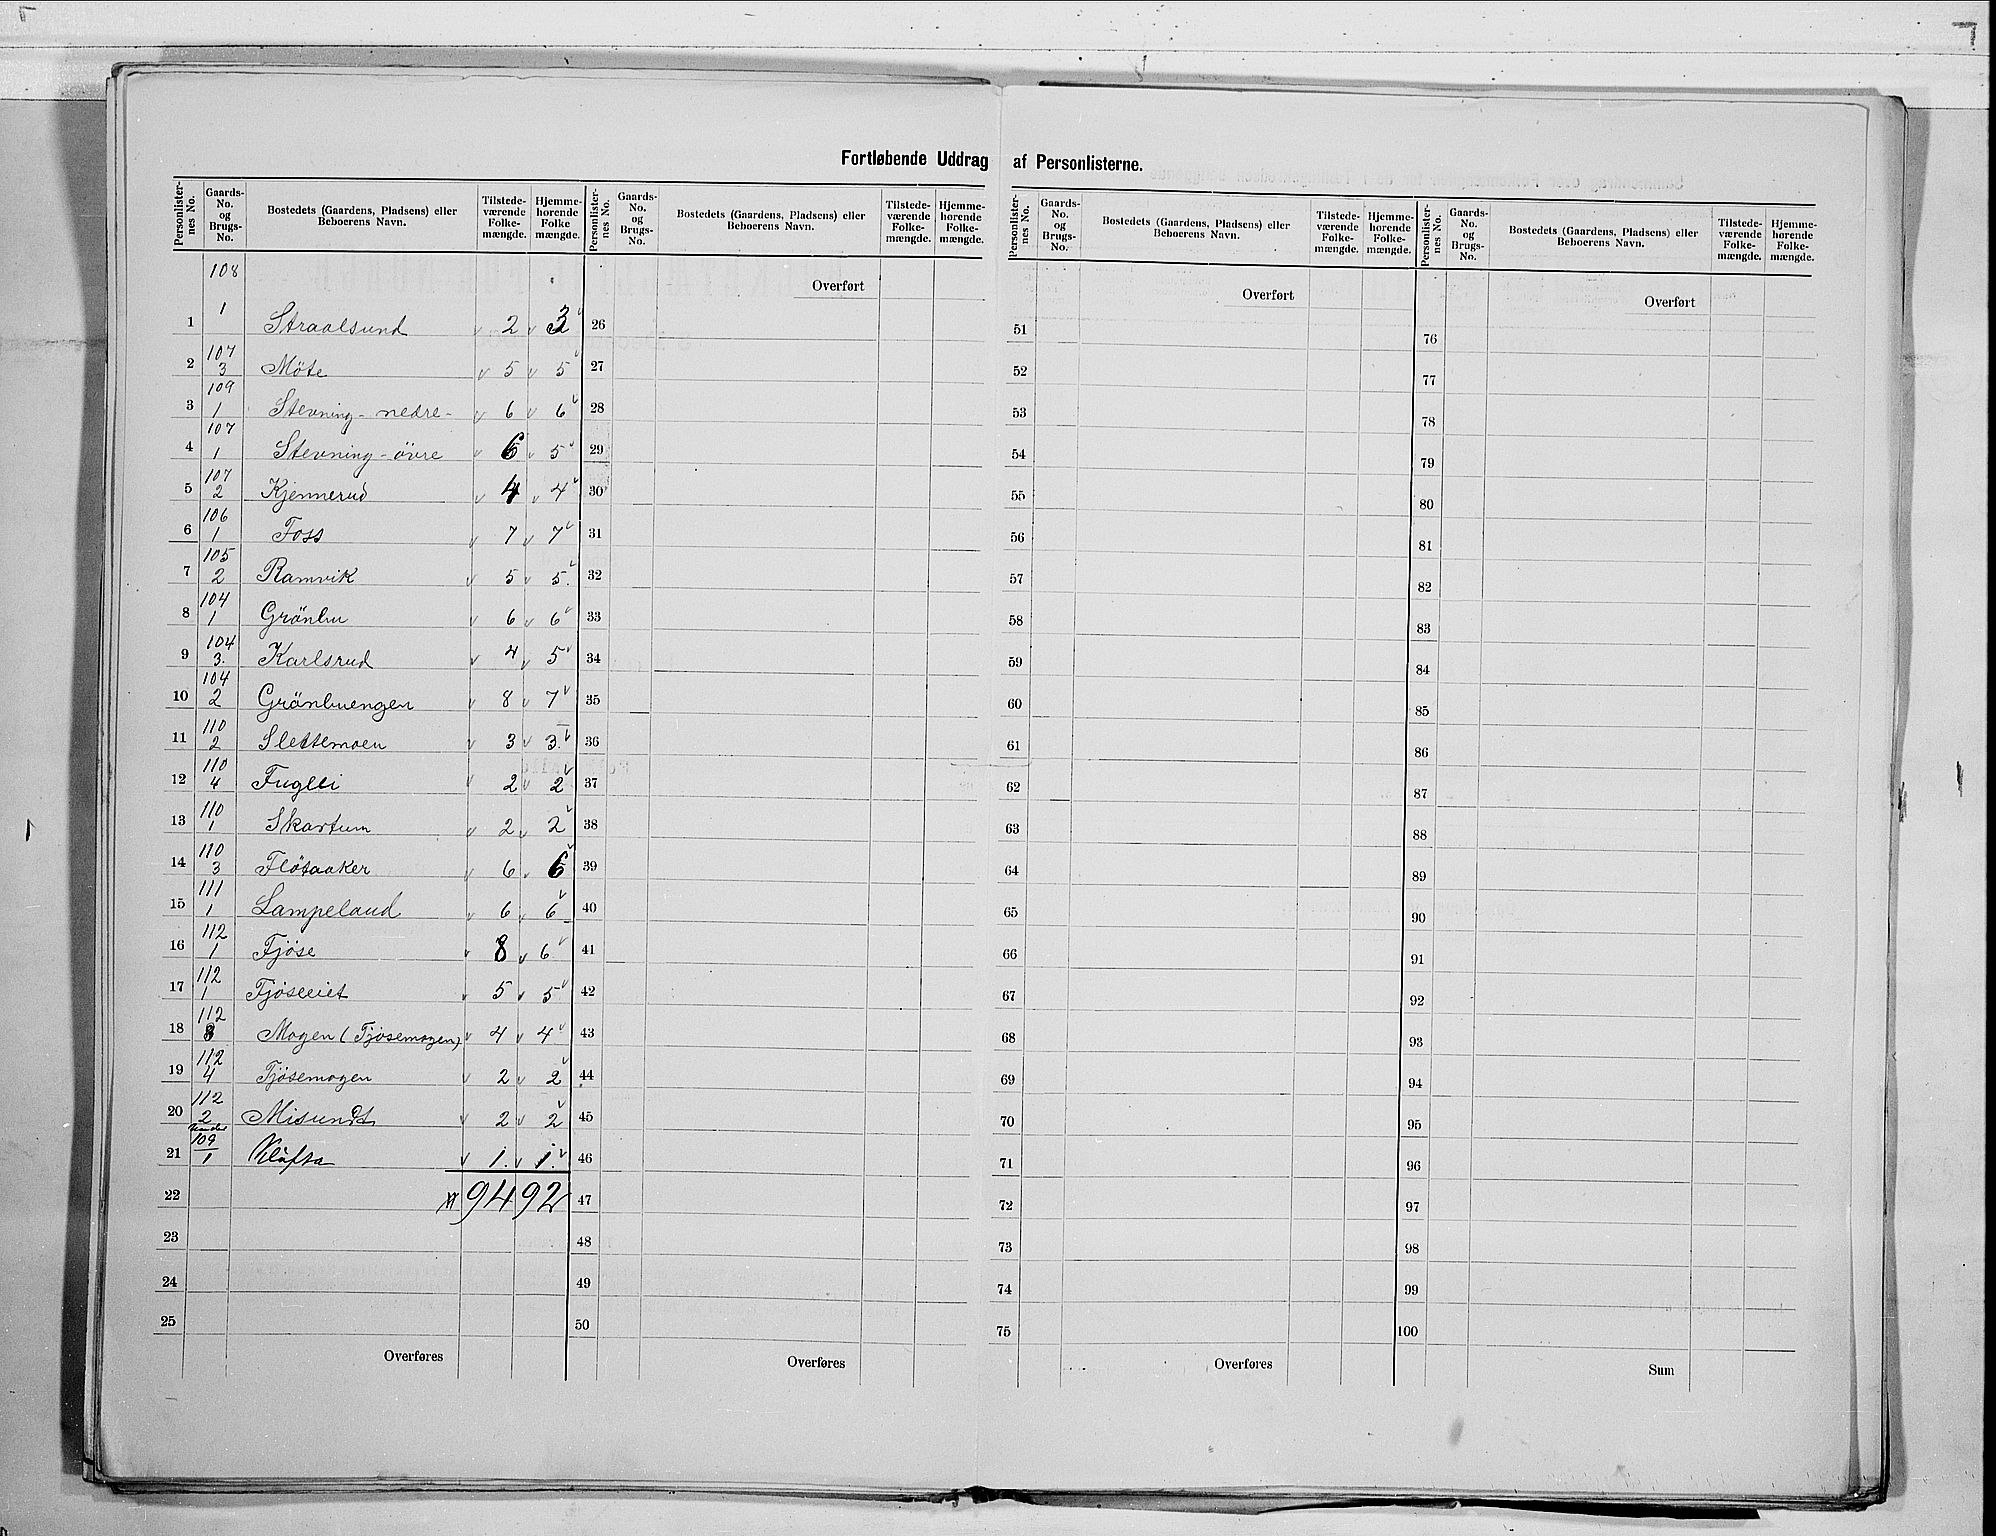 Fortløbende Uddrag af Personlisterne.
Personlister-nes No. Gaards-No. og Brugs-No. Bostedets (Gaardens, Pladsens) eller Beboerens Navn. Tilstede-værende Folke-mængde. Hjemme-hørende Folke mængde.
108
1 1 Straalsund 2 3
2 107/3 Möte 5 5
3 109/1 Stevning-nedre- 6 6
4 107/1 Stevning-övre 6 5
5 107/2 Kjennerud 4 4
6 106/1 Foss 7 7
7 105/2 Ramvik 5 5.
8 104/1 Grönbu 6 6
9 104/3. Karlsrud 4 5
10 104/2 Grönbuengen 8 7
11 110/2 Slettemoen 3 3.
12 110/4 Fuglei 2 2
13 110/1 Skartum 2 2
14 110/3 Flötaaker 6 6
15 111/1 Lampeland 6 6
16 112/1 Fjöse 8 6
17 112/1 Fjöseeiet 5 5
18 112/8 Mogen (Fjösemogen) 4 4
19 112/4 Fjösemogen 2 2
20 112/2 Misundt 2 2
Under
21 109/1 Klöfta 1. 1.
22 94 92
23
24
25
Overføres
Personlister-nes No. Gaards-No. og Brugs-No. Bostedets (Gaardens, Pladsens) eller Beboerens Navn. Tilstede-værende Folke-mængde. Hjemme-hørende Folke-mængde.
Overført
26
27
28
29
30
31
32
33
34
35
36
37
38
39
40
41
42
43
44
45
46
47
48
49
50
Overføres
Personlister-nes No. Gaards-No. og Brugs-No. Bostedets (Gaardens, Pladsens) eller Beboerens Navn. Tilstede-værende Folke-mængde. Hjemme-hørende Folke-mængde.
Overført
51
52
53
54
55
56
57
58
59
60
61
62
63
64
65
66
67
68
69
70
71
72
73
74
75
Overføres
Personlister-nes No. Gaards-No. og Brugs-No. Bostedets (Gaardens, Pladsens) eller Beboerens Navn. Tilstede-værende Folke-mængde. Hjemme-hørende Folke-mængde.
Overført
76
77
78
79
80
81
82
83
84
85
86
87
88
89
90
91
92
93
94
95
96
97
98
99
100
Sum